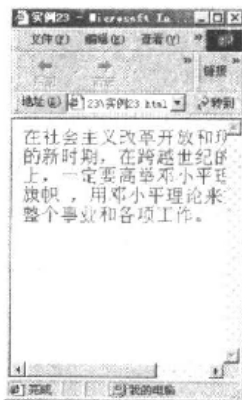 实例23 - Microsoft In
文件(F) 编辑(E) 查看(V) »
» 链接
地址(D) 23\实例23 html 转到
在社会主义改革开放和现
的新时期，在跨越世纪的
上，一定要高举邓小平理
旗帜 ，用邓小平理论来
整个事业和各项工作。
完成 我的电脑